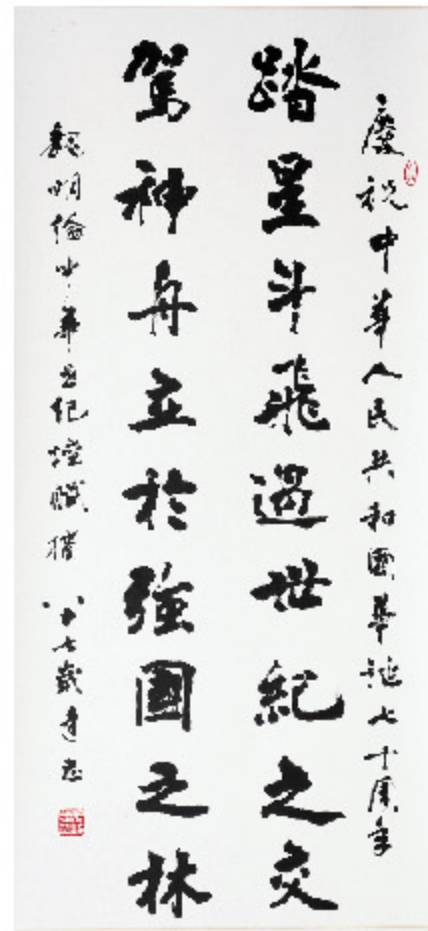 慶祝中華人民共和國華誕七十周年
踏星斗飛過世紀之交
駕神舟立於強國之林
魏明倫中華世紀壇賦摘 八十七歲達志